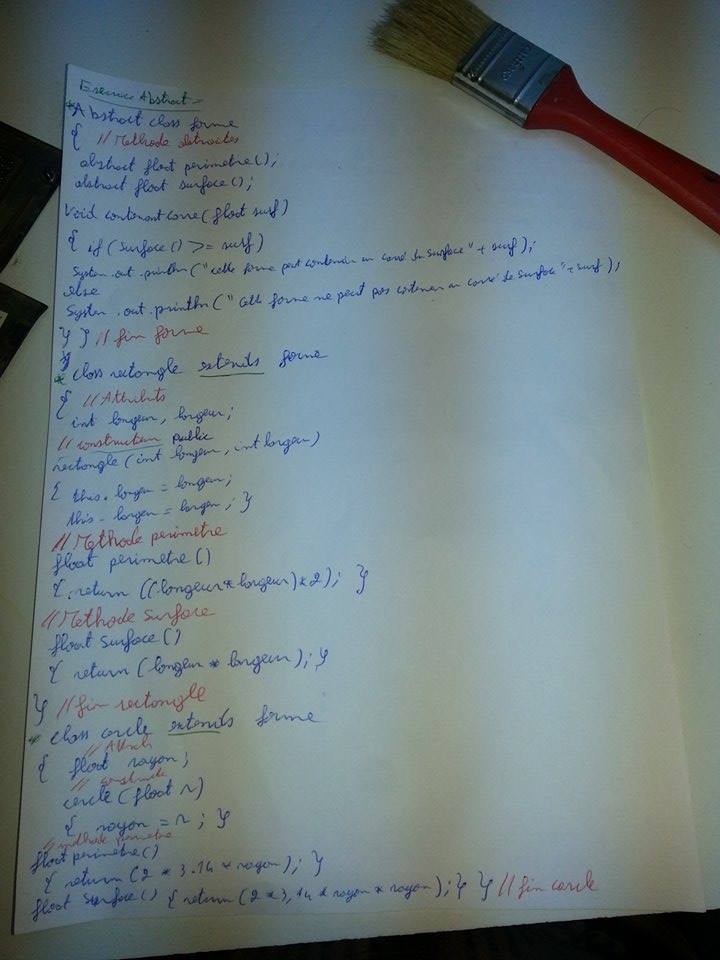 Exercice Abstract :
* Abstract class forme
{ // Methode abstraites
abstract float perimetre();
abstract float surface();
Void contenantcarre(float surf)
{ if (Surface() >= surf)
System.out.println("cette forme peut contenir un carré de surface" + surf);
else
System.out.println("Cette forme ne peut pas contenir un carré de surface" + surf);
} } // fin forme
}
* class rectangle extends forme
{ // Attributs
int longeur, largeur;
// constructeur public
rectangle(int longeur, int largeur)
{ this.longeur = longeur;
this.largeur = largeur; }
// Methode perimetre
float perimetre()
{ return ((longeur*largeur)*2); }
// Methode Surface
float Surface()
{ return (longeur * largeur); }
} // fin rectangle
* class cercle extends forme
// Attributs
{ float rayon;
// constructe
cercle(float r)
{ rayon = r; }
// méthode perimetre
float perimetre()
{ return (2 * 3.14 * rayon); }
float Surface() { return (2 * 3,14 * rayon * rayon); } } // fin cercle